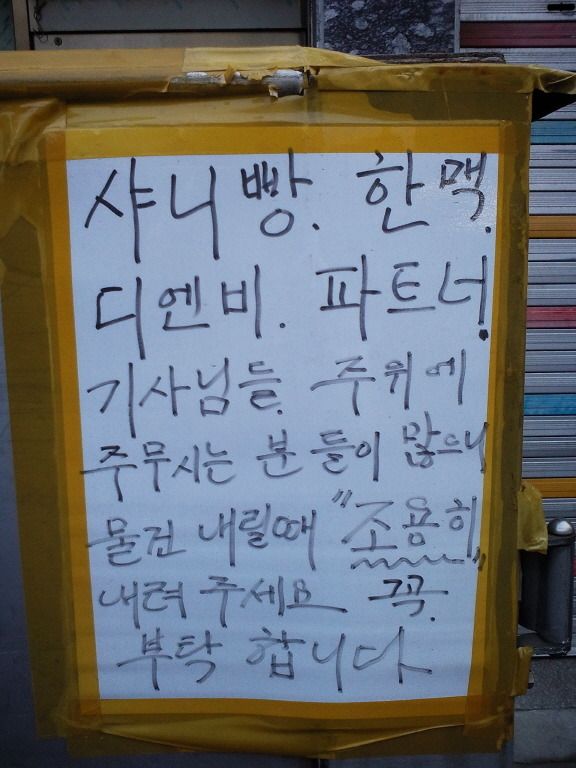 샤니빵. 한맥.
디엔비. 파트너.
기사님들. 주위에
주무시는 분들이 많으니
물건 내릴때 "조용히"
내려 주세요 꼭.
부탁 합니다